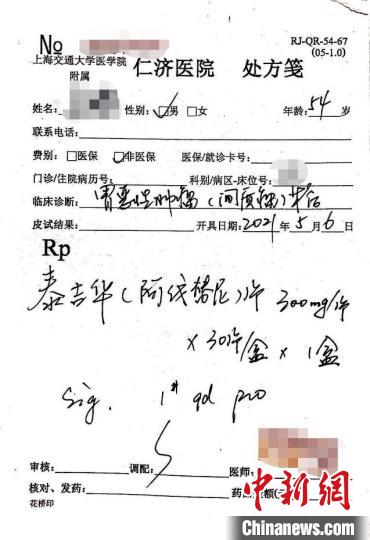 №
RJ-QR-54-67
(05-1.0)
上海交通大学医学院
附属
仁济医院 处方笺
姓名: 性别: ☑男 □女 年龄: 54 岁
联系电话:
费别: □医保 ☑非医保 医保/就诊卡号:
门诊/住院病历号: 科别/病区-床位号:
临床诊断: 胃恶性肿瘤(间质瘤)术后
皮试结果: 开具日期: 2021 年 5 月 6 日
Rp
泰吉华(阿伐替尼)片 300mg/片
x 30片/盒 x 1盒
Sig. 1# qd po
审核: 调配: 医师:
核对、发药: 药
花桥印
中新网
Chinanews.com